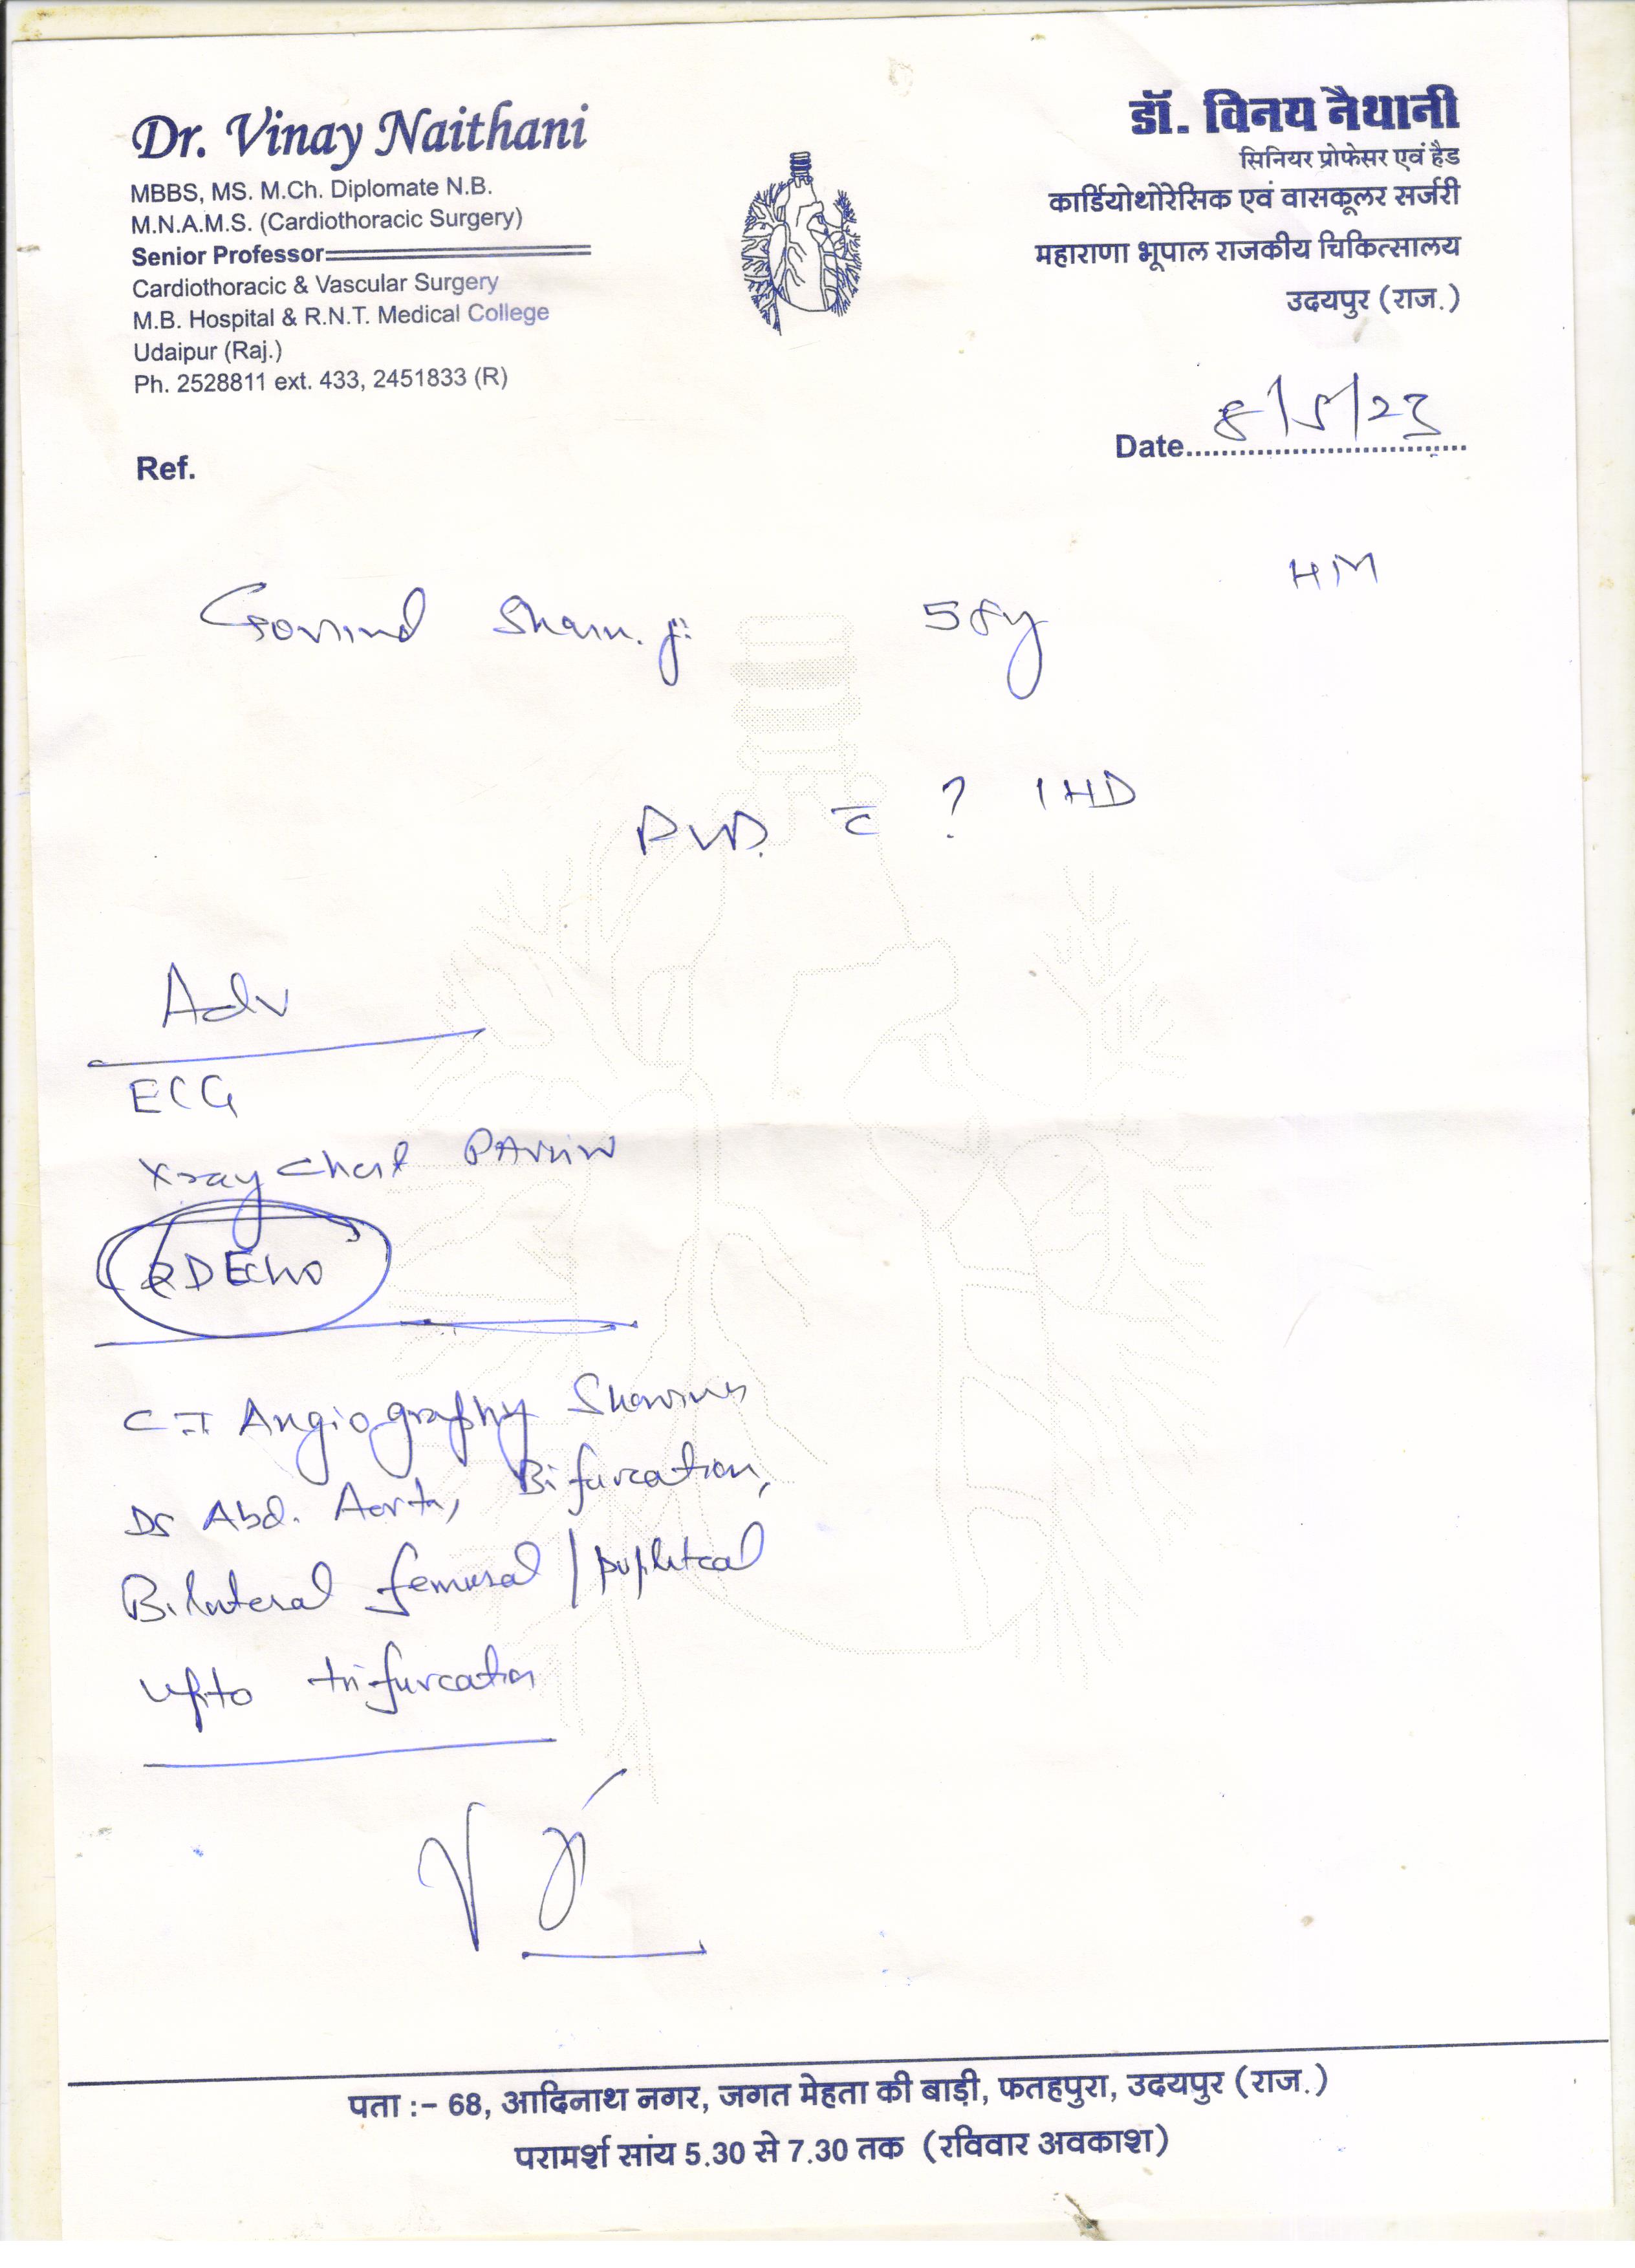 Dr. Vinay Naithani
MBBS, MS. M.Ch. Diplomate N.B.
M.N.A.M.S. (Cardiothoracic Surgery)
Senior Professor
Cardiothoracic & Vascular Surgery
M.B. Hospital & R.N.T. Medical College
Udaipur (Raj.)
Ph. 2528811 ext. 433, 2451833 (R)
डॉ. विनय नैथानी
सिनियर प्रोफेसर एवं हैड
कार्डियोथोरेसिक एवं वासकूलर सर्जरी
महाराणा भूपाल राजकीय चिकित्सालय
उदयपुर (राज.)
Date 8/5/23
Ref.
HM
Govind Sharm. ji 58y
PVD. c̅ ? IHD
Adv
ECG
Xray Chest PA view
2D Echo
CT Angiography Showing
Ds Abd. Aorta, Bifurcation,
Bilateral femoral / popliteal
upto trifurcation
पता :– 68, आदिनाथ नगर, जगत मेहता की बाड़ी, फतहपुरा, उदयपुर (राज.)
परामर्श सांय 5.30 से 7.30 तक (रविवार अवकाश)